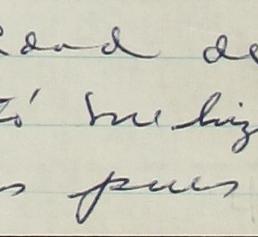 dad de
tó me hiz
s pues